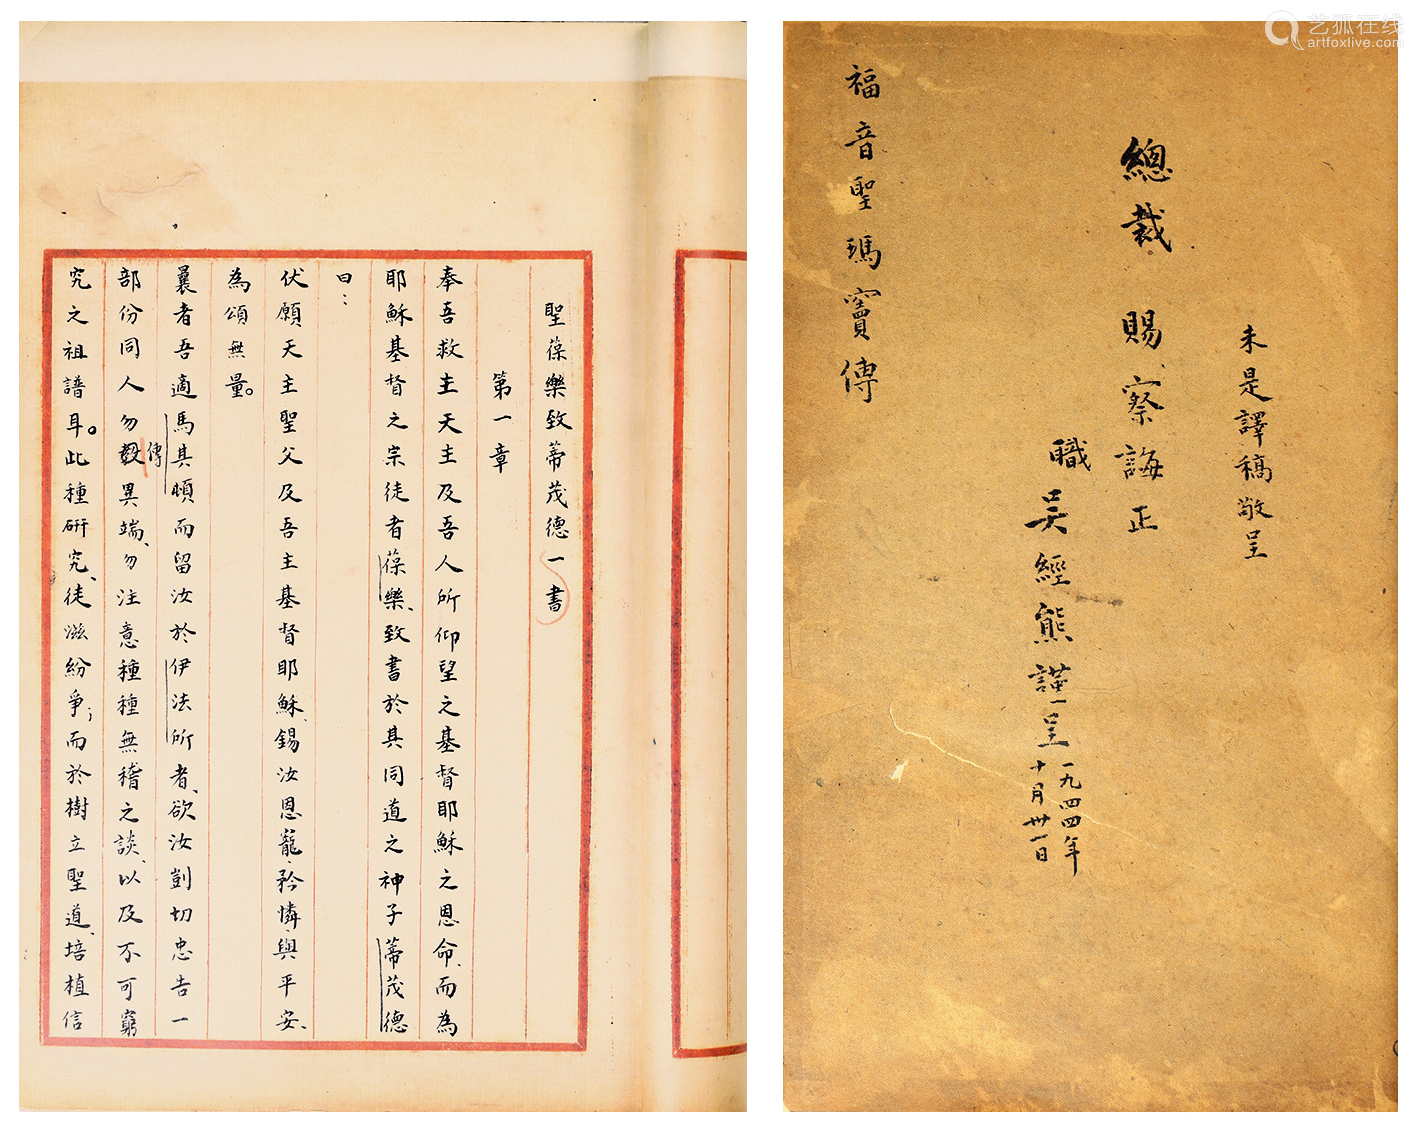 聖葆樂致蒂茂德一書
第一章
奉吾救主天主及吾人所仰望之基督耶穌之恩命、而為
耶穌基督之宗徒者葆樂、致書於其同道之神子蒂茂德
曰：
伏願天主聖父及吾主基督耶穌、錫汝恩寵、矜憐、與平安、
為頌無量。
曩者吾適馬其頓而留汝於伊法所者、欲汝剴切忠告一
傳
部份同人勿異端、勿注意種種無稽之談、以及不可窮
究之祖譜耳。此種研究、徒滋紛爭；而於樹立聖道、培植信
未是譯稿敬呈
總裁 賜察誨正
職吳經熊謹呈
一九四四年
十月卅一日
福音聖瑪竇傳
艺狐在线
artfoxlive.com